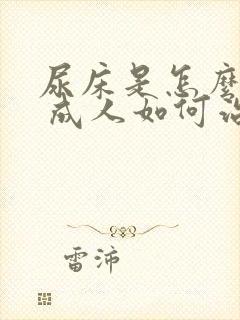 尿床是怎麽
成人如何治
雷沛